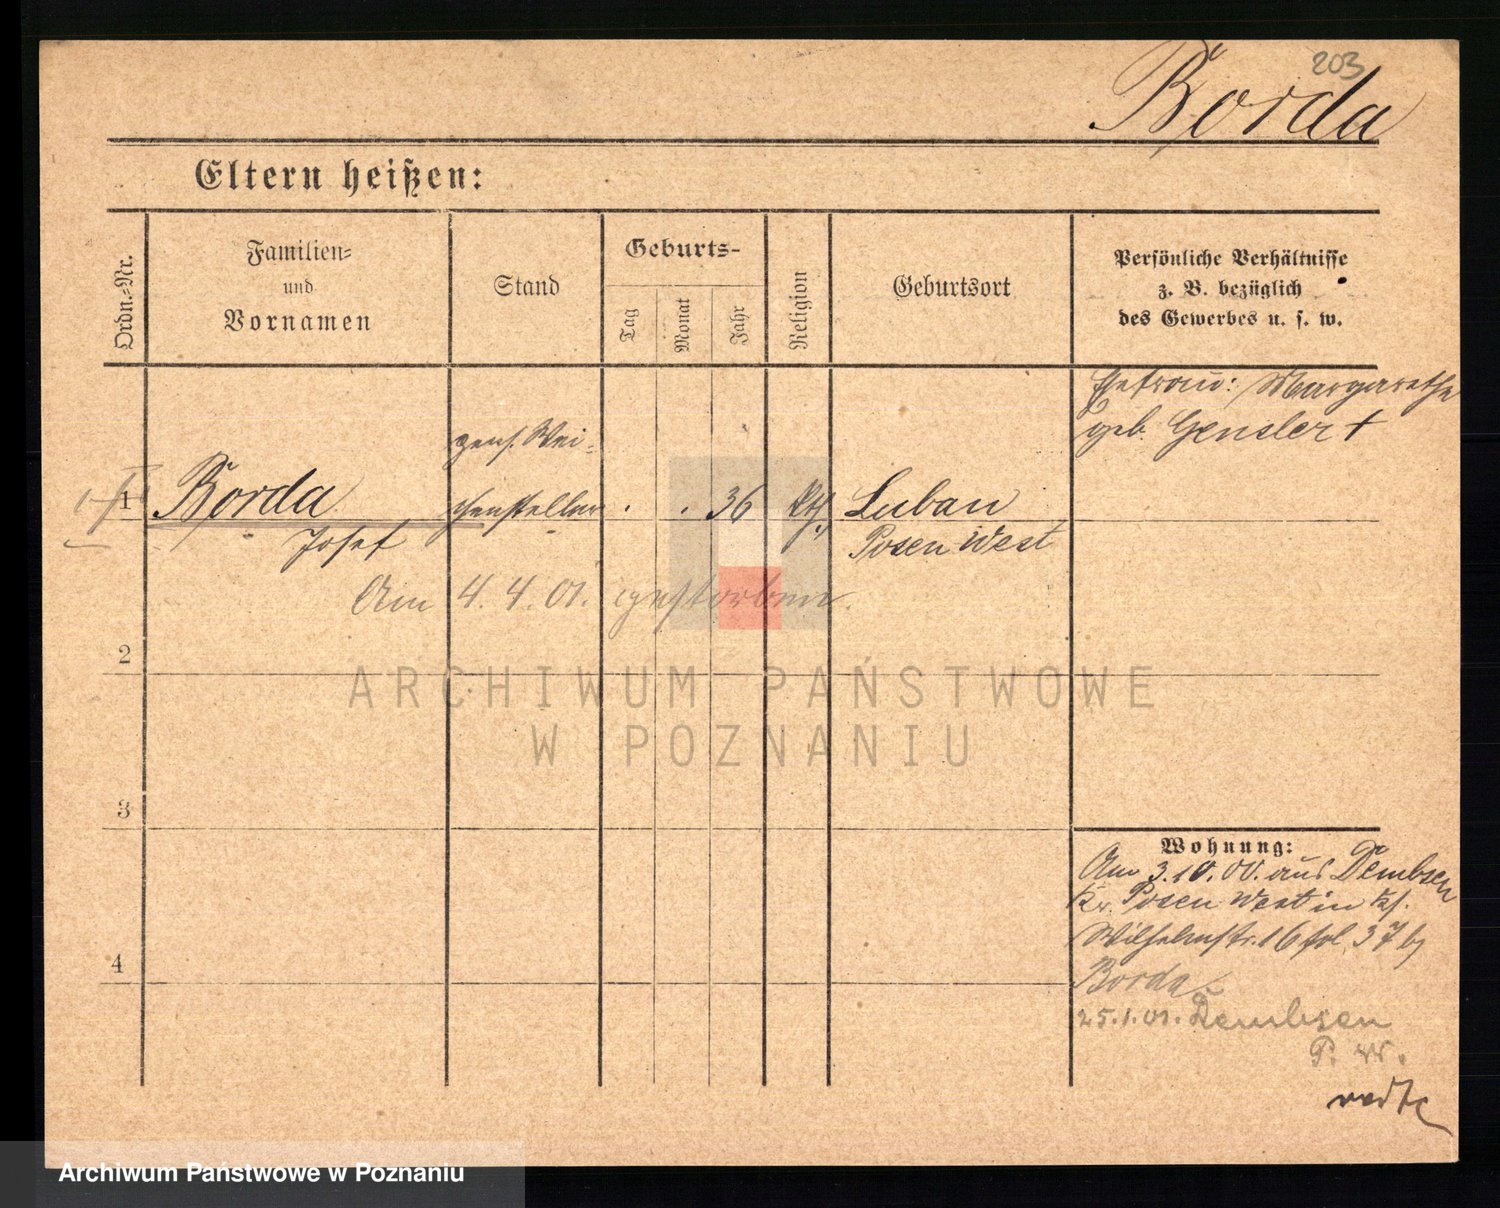 203
Borda
Eltern heißen:
Ordn.-Nr.
Familien-
und
Vornamen
Stand
Geburts-
Tag
Monat
Jahr
Religion
Geburtsort
Persönliche Verhältnisse
z. B. bezüglich
des Gewerbes u. s. w.
Ehefrau: Margarethe
geb. Gensler +
pens. Wei-
1 Borda chensteller . . 36 kth. Luban
Josef Posen West
Am 4. 4. 01. gestorben.
2
ARCHIWUM PAŃSTWOWE
W POZNANIU
3
Wohnung:
Am 3.10.00. aus Dembsen
Kr. Posen West in
Wilhelmstr. 16 37 b
4
Borda
25.1.01. Dembsen
P. W.
Archiwum Państwowe w Poznaniu